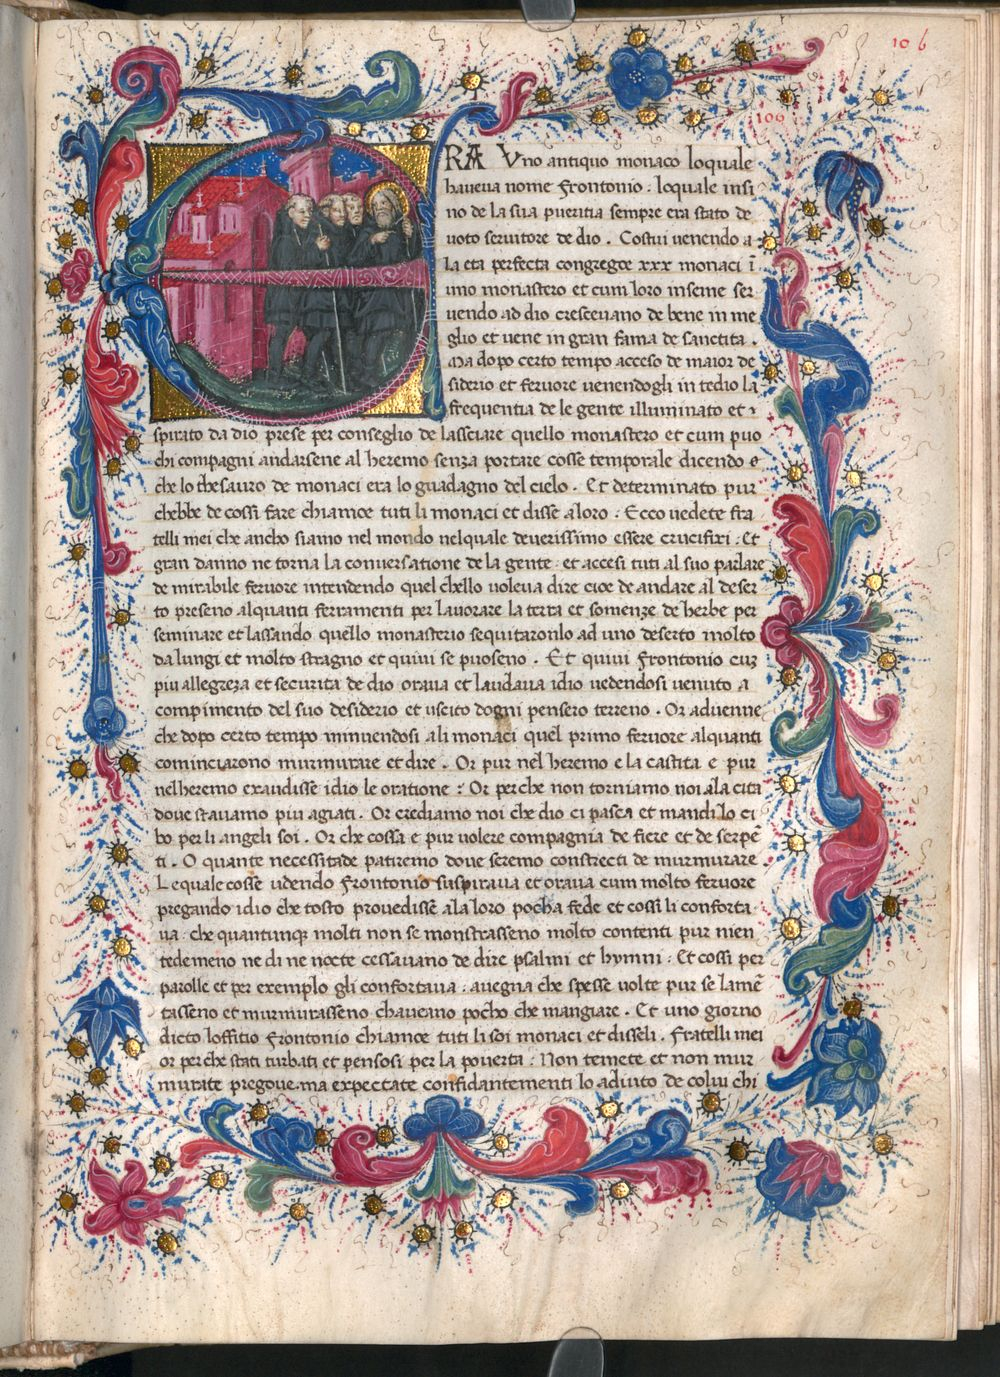 106
109
ERA Vno antiquo monaco loquale
haueua nome Frontonio : loquale insi
no de la sua pueritia sempre era stato de
uoto seruitore de dio . Costui uenendo a
la eta perfecta congregoe xxx monaci ĩ
uno monastero et cum loro inseme ser
uendo ad dio cresceuano de bene in me
glio et uene in gran fama de sanctita .
Ma dopo certo tempo acceso de maior de
siderio et feruore uenendogli in tedio la
frequentia de le gente illuminato et i
spirato da dio prese per conseglio de lassciare quello monastero et cum puo
chi compagni andarsene al heremo senza portare cosse temporale dicendo e
che lo thesauro de monaci era lo guadagno del cielo . Et determinato pur
chebbe de cossi fare chiamoe tuti li monaci et disse a loro : Ecco uedete fra
telli mei che ancho siamo nel mondo nelquale deuerissimo essere crucifixi : Et
gran danno ne torna la conuersatione de la gente : et accesi tuti al suo parlare
de mirabile feruore intendendo quel chello uoleua dire cioe de andare al deser
to preseno alquanti ferramenti per lauorare la terra et somenze de herbe per
seminare et lassando quello monasterio sequitaronlo ad uno deserto molto
da lungi et molto stragno et quiui se puoseno . Et quiui Frontonio cuz
piu allegreza et securita de dio oraua et laudaua idio uedendosi uenuto a
compimento del suo desiderio et uscito dogni pensero terreno . Or aduenne
che dopo certo tempo minuendosi a li monaci quel primo feruore alquanti
cominciarono murmurare et dire . Or pur nel heremo e la castita e pur
nelheremo exaudisse idio le oratione : Or perche non torniamo noi ala cita
doue stauamo piu agiati . Or crediamo noi che dio ci pasca et mandi lo ci
bo per li angeli soi . Or che cossa e pur uolere compagnia de fiere et de serpẽ
ti . O quante necessitade patiremo doue seremo constrecti de murmurare
Le quale cosse udendo Frontonio suspiraua et oraua cum molto feruore
pregando idio che tosto prouedisse a la loro pocha fede et cossi li conforta
ua : che quantunque molti non se monstrasseno molto contenti pur nien
tedemeno ne di ne nocte cessauano de dire psalmi et hymni : Et cossi per
parolle et per exemplo gli confortaua : auegna che spesse uolte pur se lamẽ
tasseno et murmurasseno chaueano pocho che mangiare . Et uno giorno
dicto loffitio Frontonio chiamoe tuti li soi monaci et disseli . Fratelli mei
or perche stati turbati et pensosi per la pouerta : Non temete et non mur
murate pregoue . ma expectate confidantementi lo adiuto de colui chi